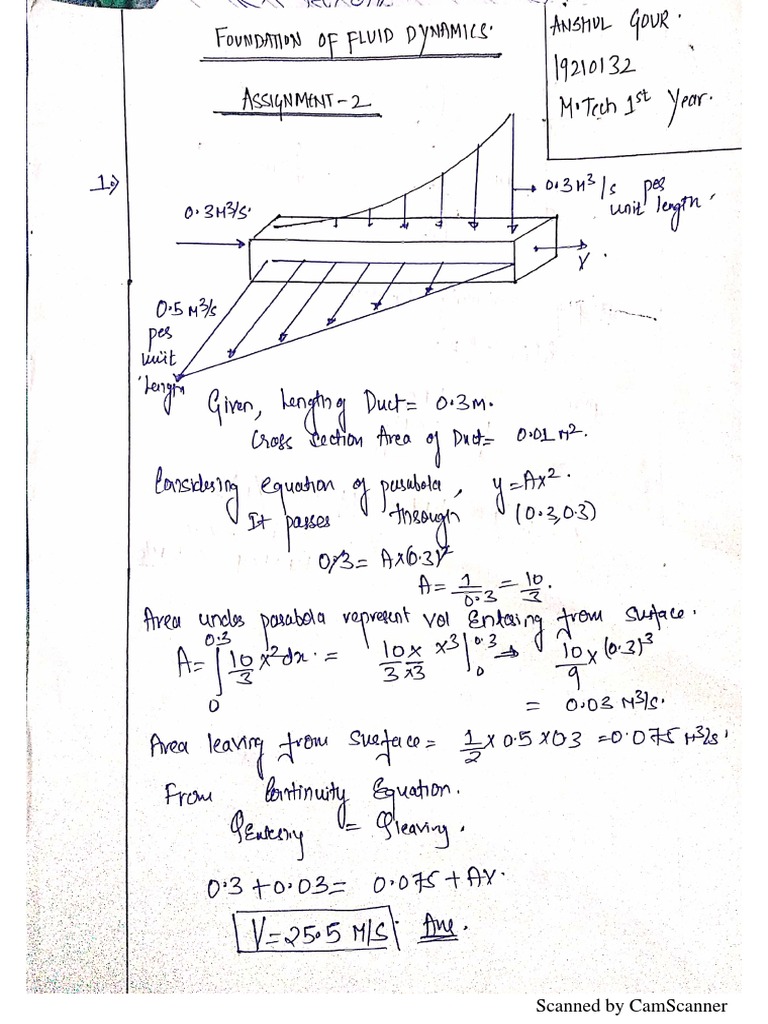 FOUNDATION OF FLUID DYNAMICS.
ANSHUL GOUR.
19210132
M.Tech 1st Year.
ASSIGNMENT-2
1.)
0.3 M³/s.
0.3 M³/s per
unit length.
V.
0.5 M³/s
per
unit
length
Given, Length of Duct = 0.3 M.
Cross Section Area of Duct = 0.01 M².
Considering equation of parabola, y = Ax².
It passes through (0.3, 0.3)
0.3 = A×(0.3)²
A = 1/0.3 = 10/3.
Area under parabola represent vol Entering from surface.
A = ∫₀^0.3 10/3 x² dx. = 10/3 × x³/3 |₀^0.3 → 10/9 × (0.3)³
= 0.03 M³/s.
Area leaving from surface = 1/2 × 0.5 × 03 = 0.075 M³/s.
From Continuity Equation.
QEntering = Qleaving.
0.3 + 0.03 = 0.075 + AV.
V = 25.5 M/S. Ans.
Scanned by CamScanner